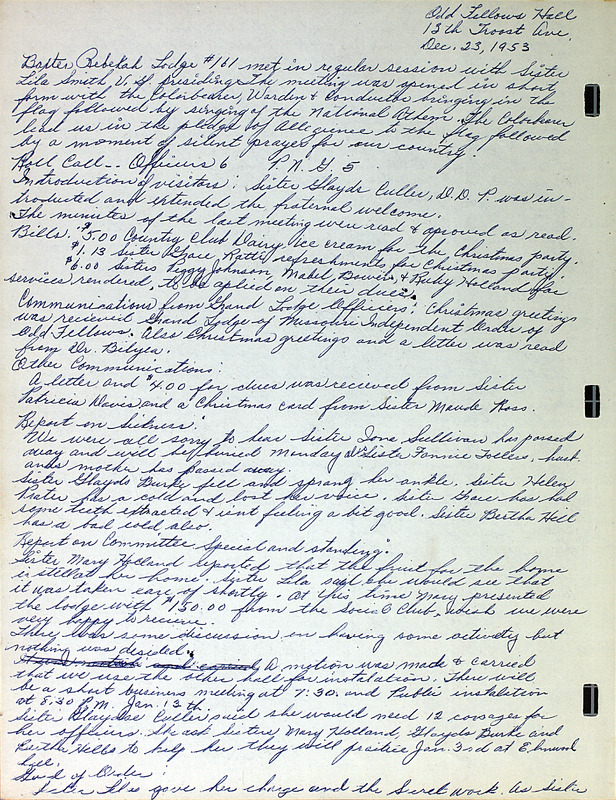 Odd Fellows Hall
13th Troost Ave.
Dec. 23, 1953
Baxter Rebekah Lodge #161 met in regular session with Sister
Lila Smith V. G. presiding. The meeting was opened in short
form with the Colorbearer, Warden & Conductor bringing in the
flag followed by singing of the National Athem. The Colorbearer
lead us in the pledge of Allegience to the flag followed
by a moment of silent prayer for our country.
Roll Call -- Officers 6 P. N. G 5
Introduction of visitors: Sister Glayds Culler, D.D.P. was in-
troduced and extended the fraternal welcome.
The minutes of the last meeting were read & aproved as read.
Bills. $5.00 Country Club Dairy, Ice cream for the Christmas party.
$1.13 Sister Grace Ratti, refreshments for Christmas party.
$6.00 Sisters Peggy Johnson, Mabel Bowers, & Ruby Holland for
services rendered, to be aplied on their dues.
Communications from Grand Lodge Officers: Christmas greetings
was recieved Grand Lodge of Missouri Independent Order of
Odd Fellows. Also Christmas greetings and a letter was read
from Dr. Bilyea.
Other Communications:
A letter and $4.00 for dues was received from Sister
Patricia Davis and a Christmas card from Sister Maude Ross.
Report on Sickness:
We were all sorry to hear Sister Ione Sullivan has passed
away and will be buried Monday & Sister Fannie Tollers, husb.
ands mother has passed away.
Sister Glayds Burke fell and sprang her ankle. Sister Helen
Prater has a cold and lost her voice. Sister Grace has had
some teeth extracted & isnt feeling a bit good. Sister Bertha Hill
has a bad cold also.
Report on Committee Special and standing:
Sister Mary Holland reported that the fruit for the home
is still at her home. Sister Lila said she would see that
it was taken care of shortly. At this time Mary presented
the lodge with $150.00 from the Social Club, wich we were
very happy to recieve.
There was some discussion in having some activety but
nothing was desided.
A motion was made & carried
that we use the other hall for instalation. There will
be a short business meeting at 7:30 and Public instalition
at 8:30 P.M. Jan. 13th.
Sister Glaydse Culler said she would need 12 corsages for
her officers. She ask Sisters Mary Holland, Glayds Burke and
Bertha Hills to help her they will practice Jan. 3rd at
Good of Order:
Sister gave her charge and the Secret work. As Sister